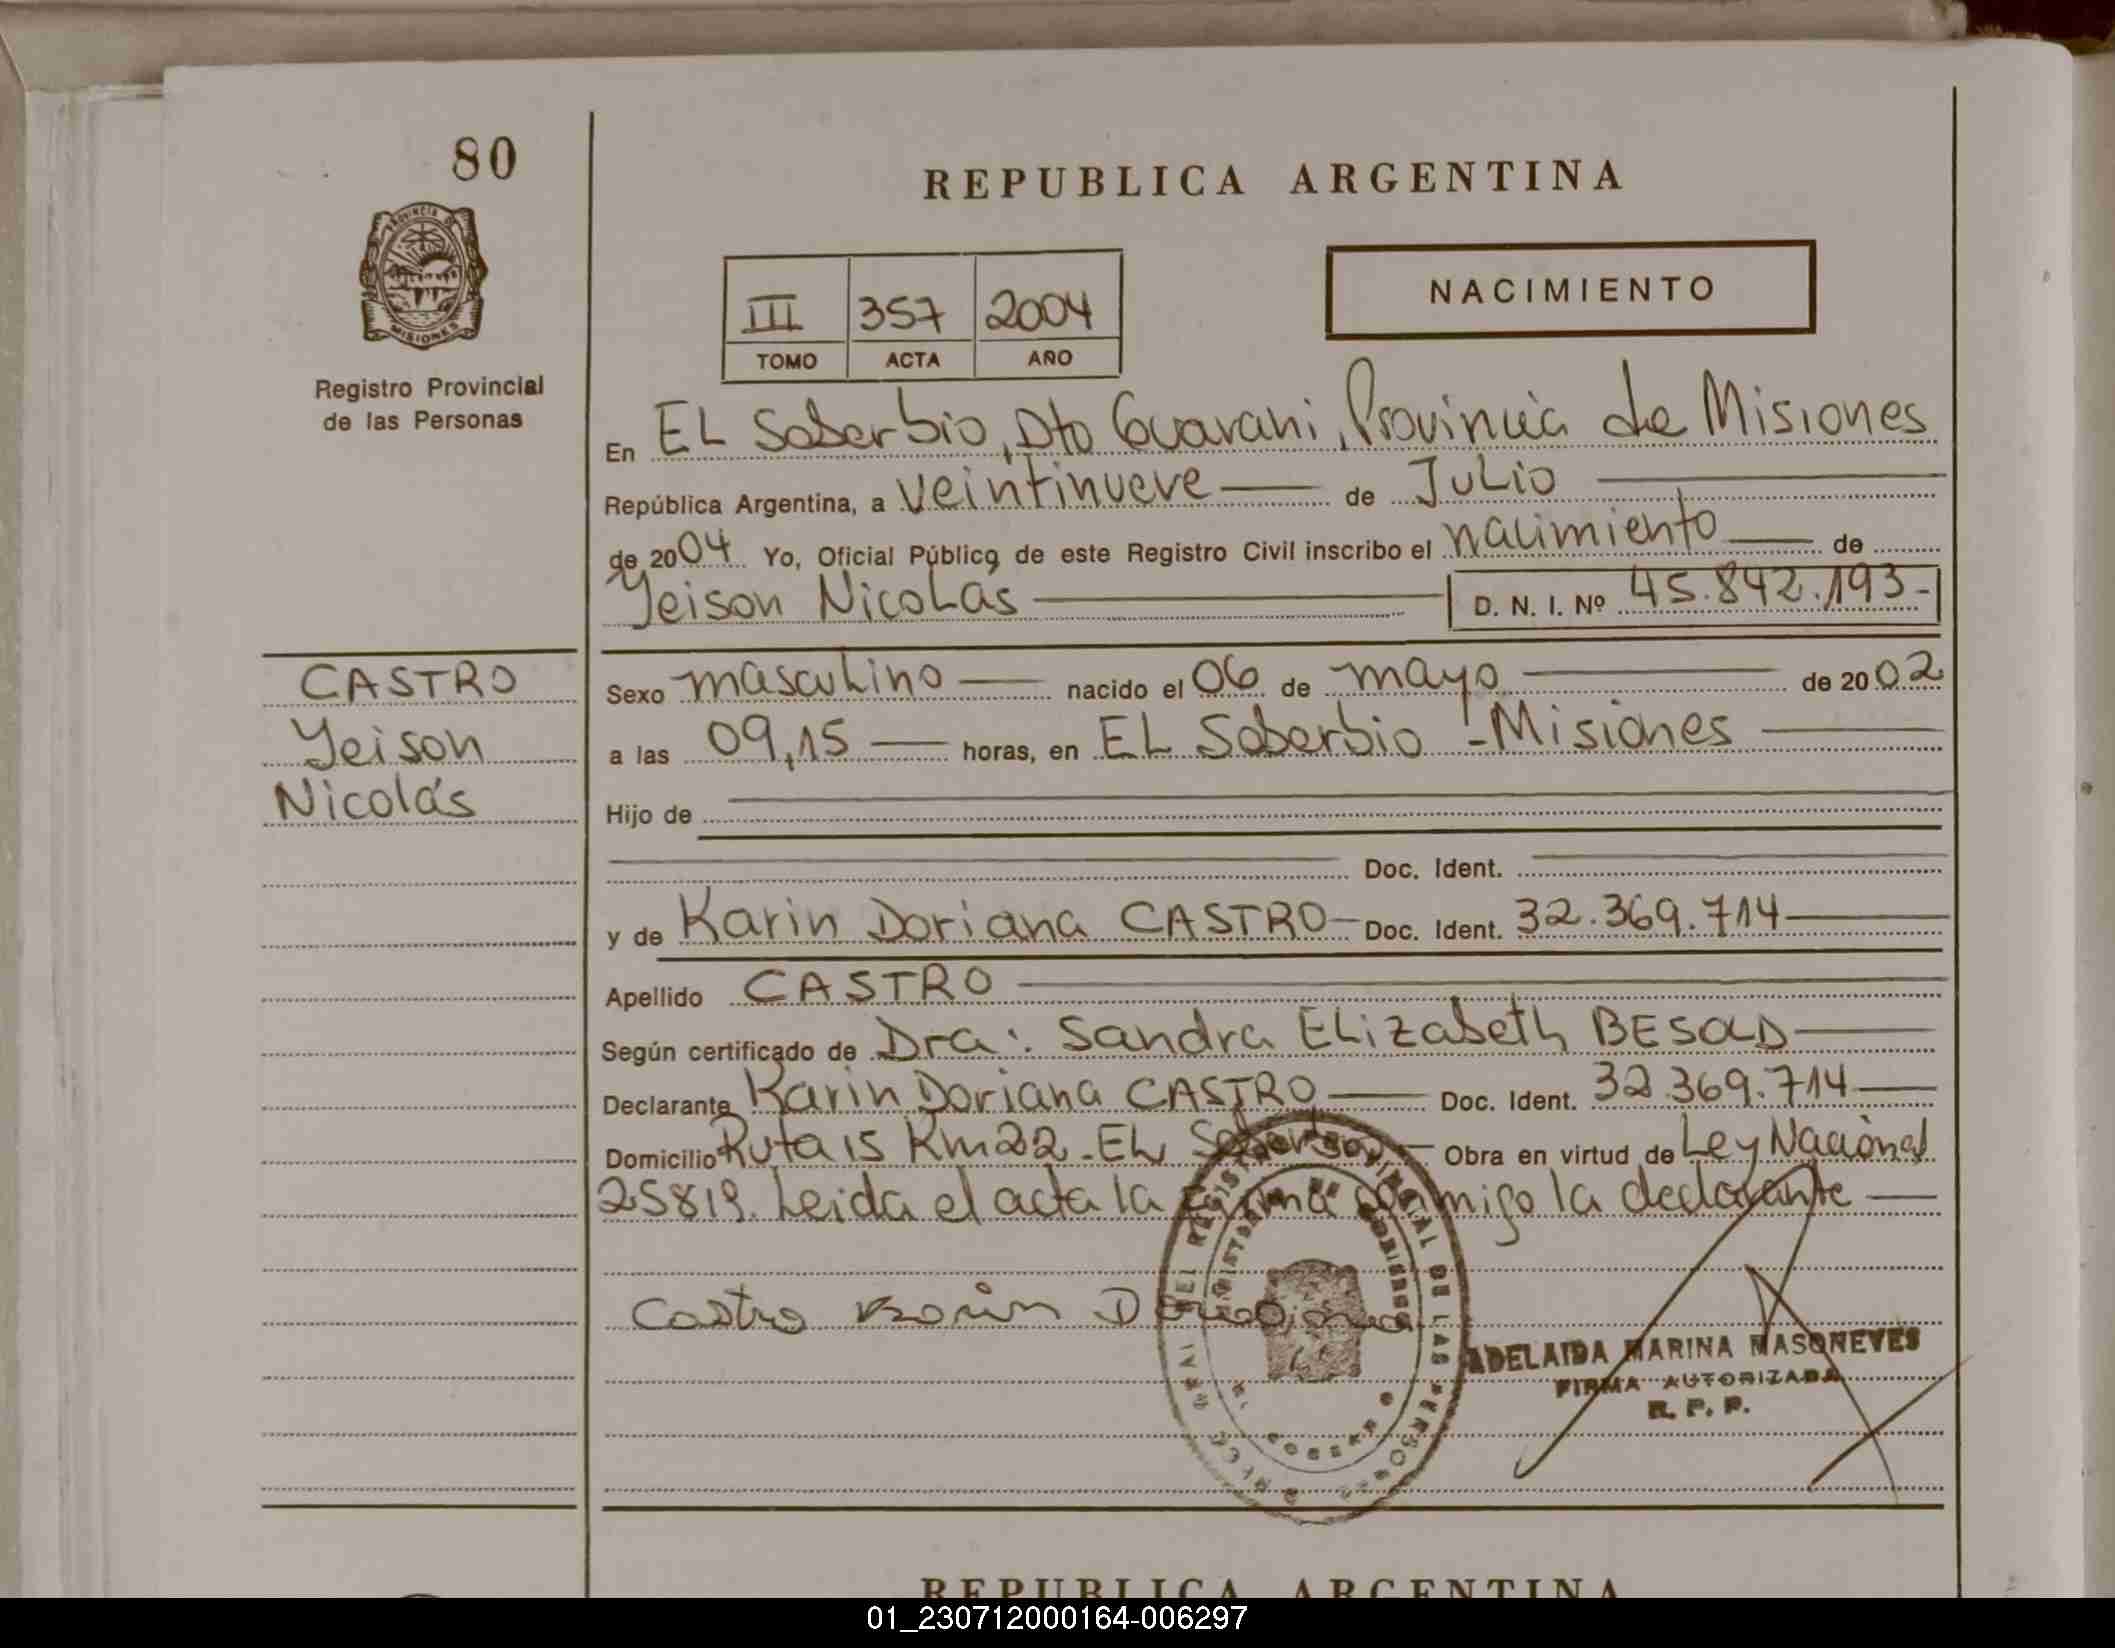 80
REPUBLICA ARGENTINA
PROVINCIA DE
MISIONES
Registro Provincial
de las Personas
III 357 2004
TOMO ACTA AÑO
NACIMIENTO
En EL Soberbio, Dto Guarani, Provincia de Misiones
República Argentina, a veintinueve de Julio
de 2004 Yo, Oficial Público de este Registro Civil inscribo el nacimiento de
Yeison Nicolás D. N. I. Nº 45.842.193-
CASTRO
Yeison
Nicolás
Sexo masculino nacido el 06 de mayo de 2002
a las 09,15 horas, en EL Soberbio - Misiones
Hijo de
Doc. Ident.
y de Karin Doriana CASTRO Doc. Ident. 32.369.714
Apellido CASTRO
Según certificado de Dra: Sandra Elizabeth BESOLD
Declarante Karin Doriana CASTRO Doc. Ident. 32.369.714
Domicilio Ruta 15 Km 22 - EL Soberbio Obra en virtud de Ley Nacional
25819. Leida el acta la firma conmigo la declarante
Castro Karin
ADELAIDA MARINA MASONEVES
FIRMA AUTORIZADA
R. P. P.
REPUBLICA ARGENTINA
01_230712000164-006297